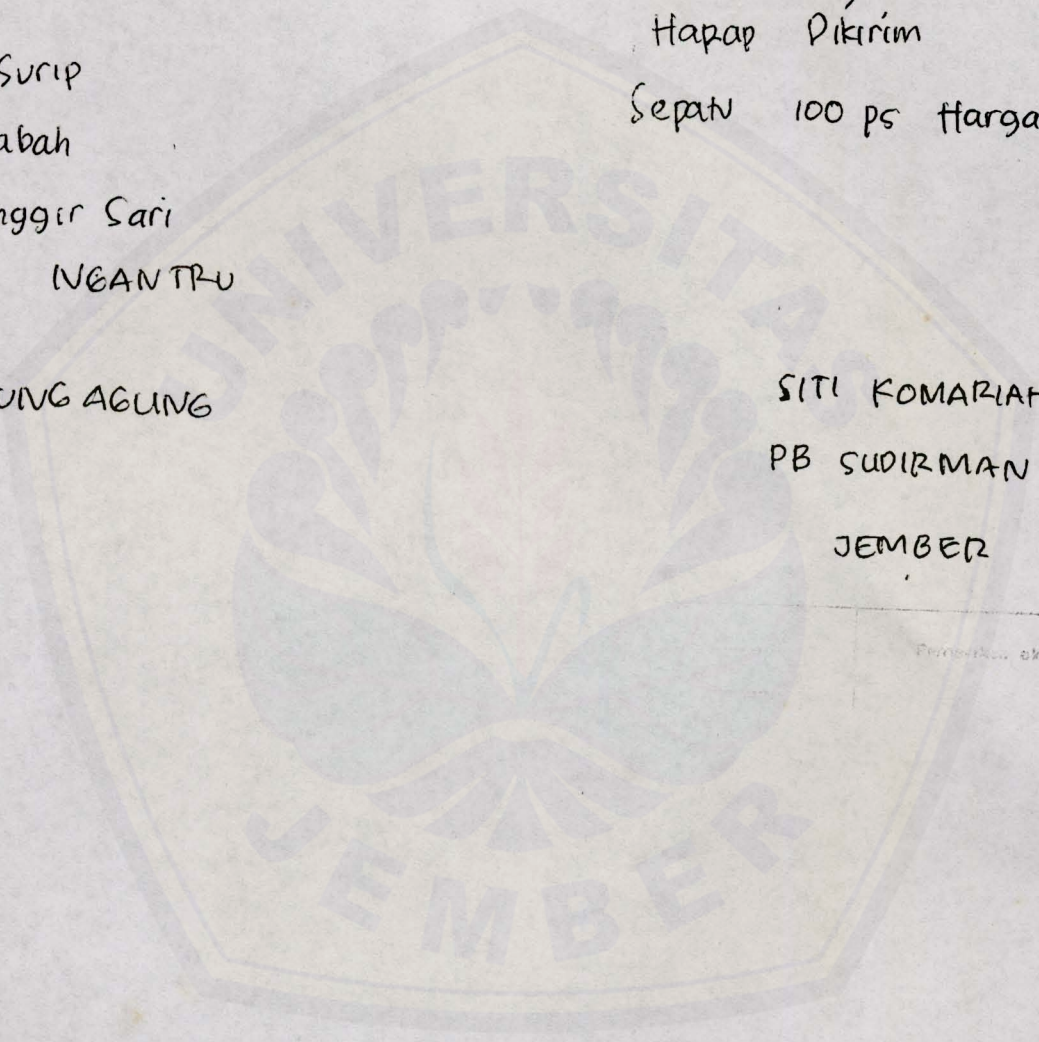 Surip
abah
nggir Sari
NGANTRU
UNG AGUNG
Harap Dikirim
Sepatu 100 ps Harga
SITI KOMARIAH
PB SUDIRMAN
JEMBER
UNIVERSITAS
JEMBER